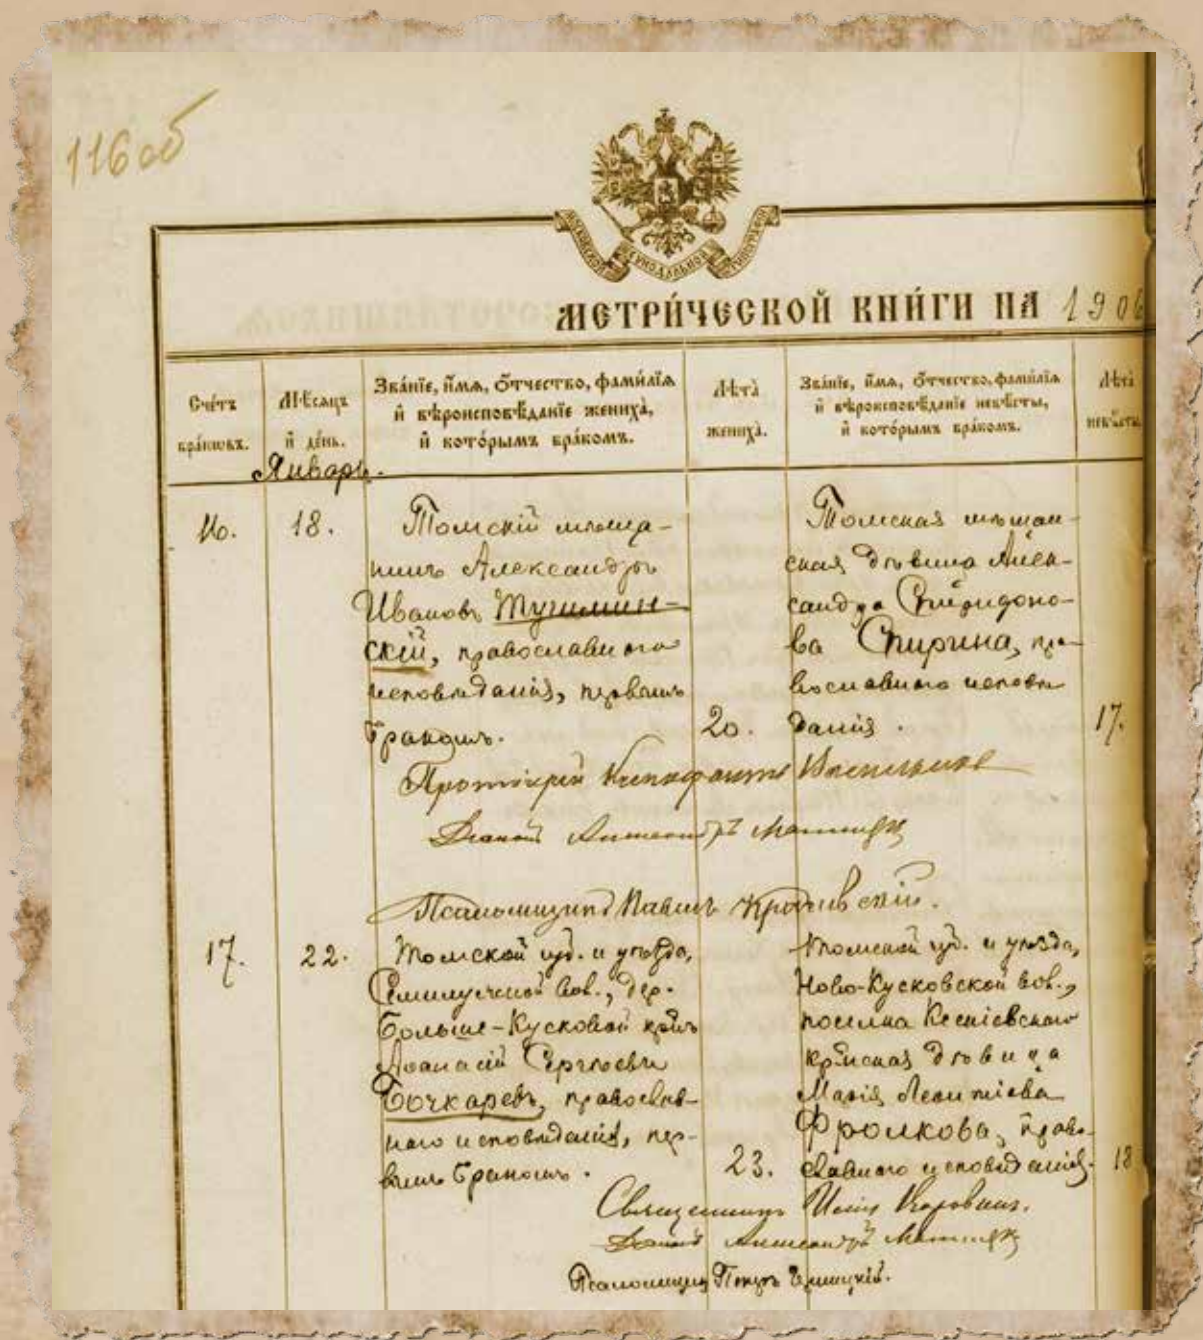 116 об
МЕТРИ́ЧЕСКОЙ КНИ́ГИ НА 1906
Сче́тъ бра́кѡвъ.
Мѣ́сяцъ и҆ де́нь.
Зва́нїе, и҆́мѧ, ѻ҆́тчество, фами́лїѧ
и҆ вѣроисповѣ́данїе жениха̀,
и҆ кото́рымъ бра́комъ.
Лѣта̀ жениха̀.
Зва́нїе, и҆́мѧ, ѻ҆́тчество, фами́лїѧ
и҆ вѣроисповѣ́данїе невѣ́сты,
и҆ кото́рымъ бра́комъ.
Лѣта̀ невѣ́сты
Январь.
16.
18.
Томскій мѣща-
нинъ Александръ
Ивановъ Тушимин-
скій, православнаго
исповѣданія, первымъ
бракомъ.
20.
Томская мѣщан-
ская дѣвица Алек-
сандра Спиридоно-
ва Спирина, пра-
вославнаго исповѣ
данія.
17.
Протоіерей
Діаконъ Александръ
Псаломщикъ Павелъ
17.
22.
Томской губ. и уѣзда,
вол., дер.
Больше-Кусковой кр̃нъ
Аѳанасій Сергѣевъ
Бочкаревъ, православ-
наго исповѣданія, пер-
вымъ бракомъ.
23.
Томской губ. и уѣзда,
Ново-Кусковской вол.,
поселка
кр̃нская дѣвица
Марія Леонтіева
Фролкова, право-
славнаго исповѣданія.
18
Священникъ
Діаконъ Александръ
Псаломщикъ Петръ